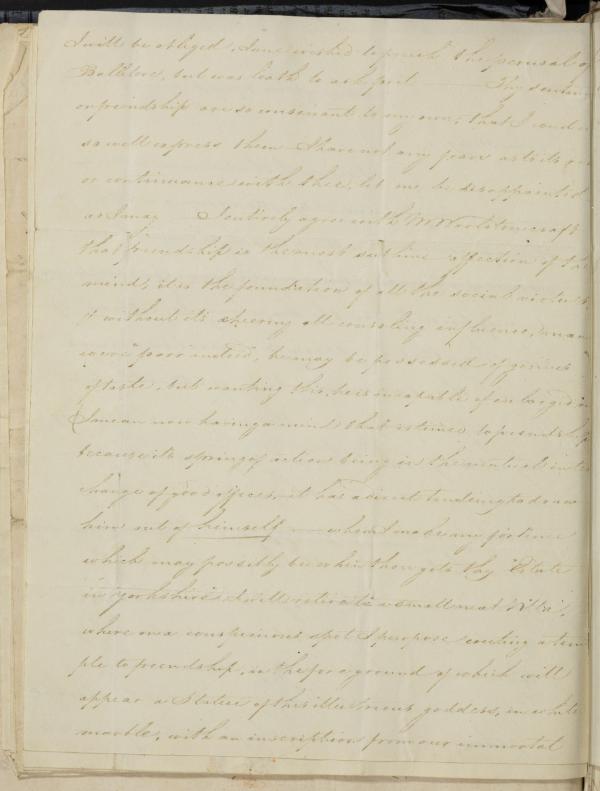 I will be obliged, I once wished to punish the perusal of
but was loath to ask, yet Thy sentim
on friendship are so consonant to my own, that I could n
so well express them I have not any fear as to its
or continuance with thee, let me be disappointed
as I may I entirely agree with M Woolstonecraft
that friendship is the most sublime affection of the
mind, it is the foundation of all the social virtues
& without its cheering all consoling influence, man
were poor indeed, he may be possessed of genius
of taste, but wanting this, he is incapable of enlarged
I mean now having a mind that is tuned to friendship
because its spring of action being in the mutual inter
change of good offices, it has a direct tendency to draw
him out of himself — when I make my fortune
which may possibly be when thou gets thy Estate
in Yorkshire I will retire to a small neat
where on a conspicuous spot I purpose erecting a tem
ple to friendship, in the fore ground of which will
appear a Statue of this illustrious goddess, in white
marble, with an inscription from our immortal